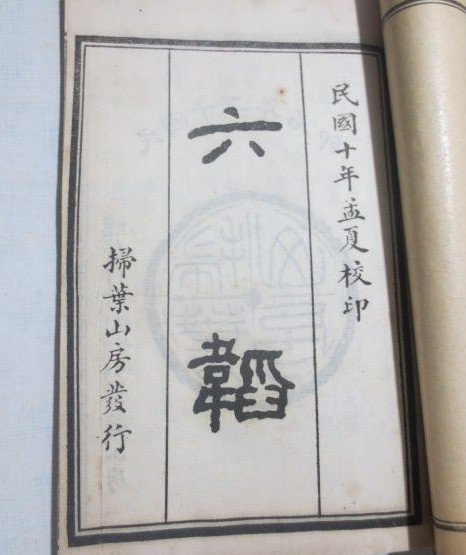 民國十年孟夏校印
六韜
掃葉山房發行